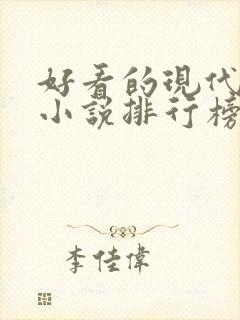 好看的現代
小說排行榜
李佳偉